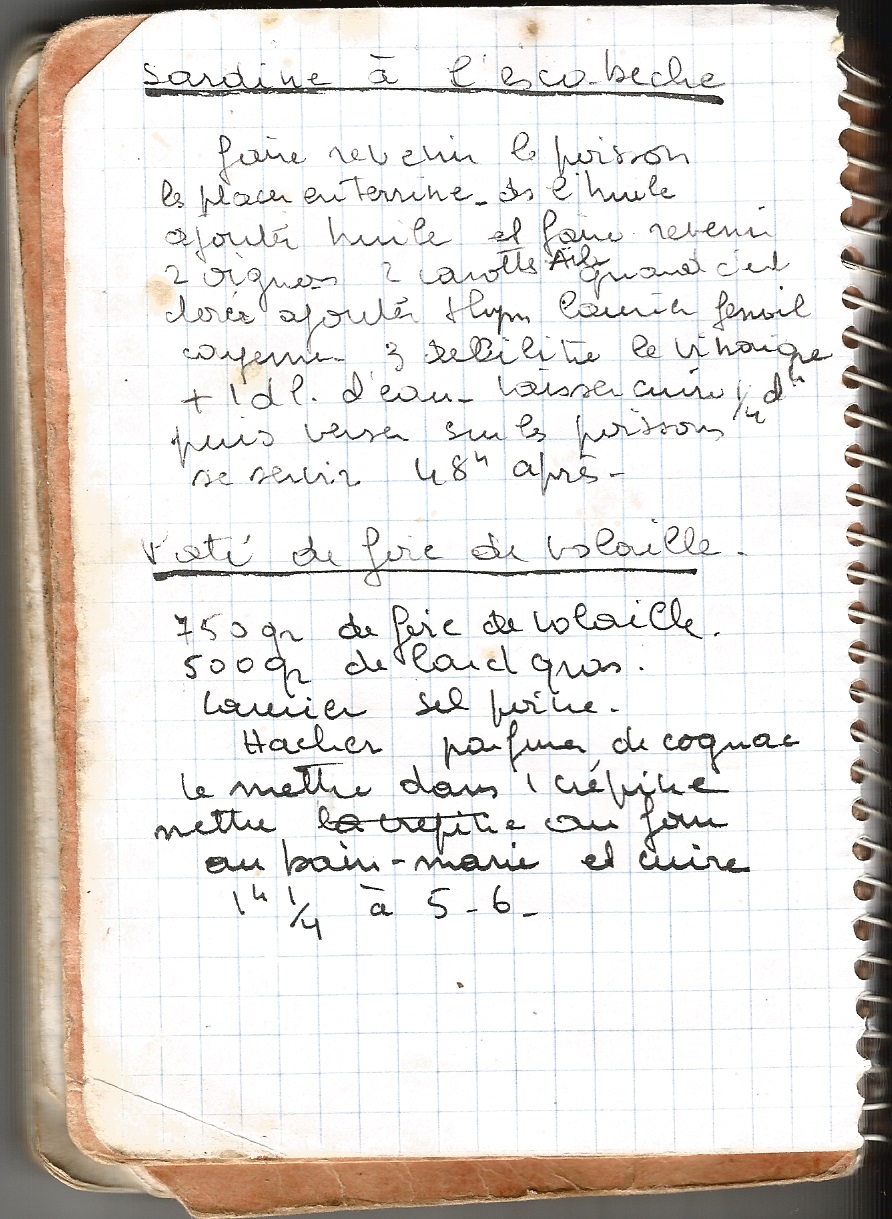 Sardine à l'escabeche
faire revenir le poisson
les placer en Terrine - ds l'huile
ajouter huile et faire revenir
2 oignons 2 carottes Ail quand c'est
dorée ajouter thym laurier fenouil
cayenne 3 de vinaigre
+ 1 dl. d'eau - laisser cuire 1/4 d'h
puis verser sur les poissons
se servir 48h après -
Paté de foie de volaille.
750 gr de foie de volaille.
500 gr de lard gras.
laurier sel poivre.
Hacher parfumer de cognac
le mettre dans 1 crépine
mettre la crepine au four
au bain-marie et cuire
1h 1/4 à 5-6-